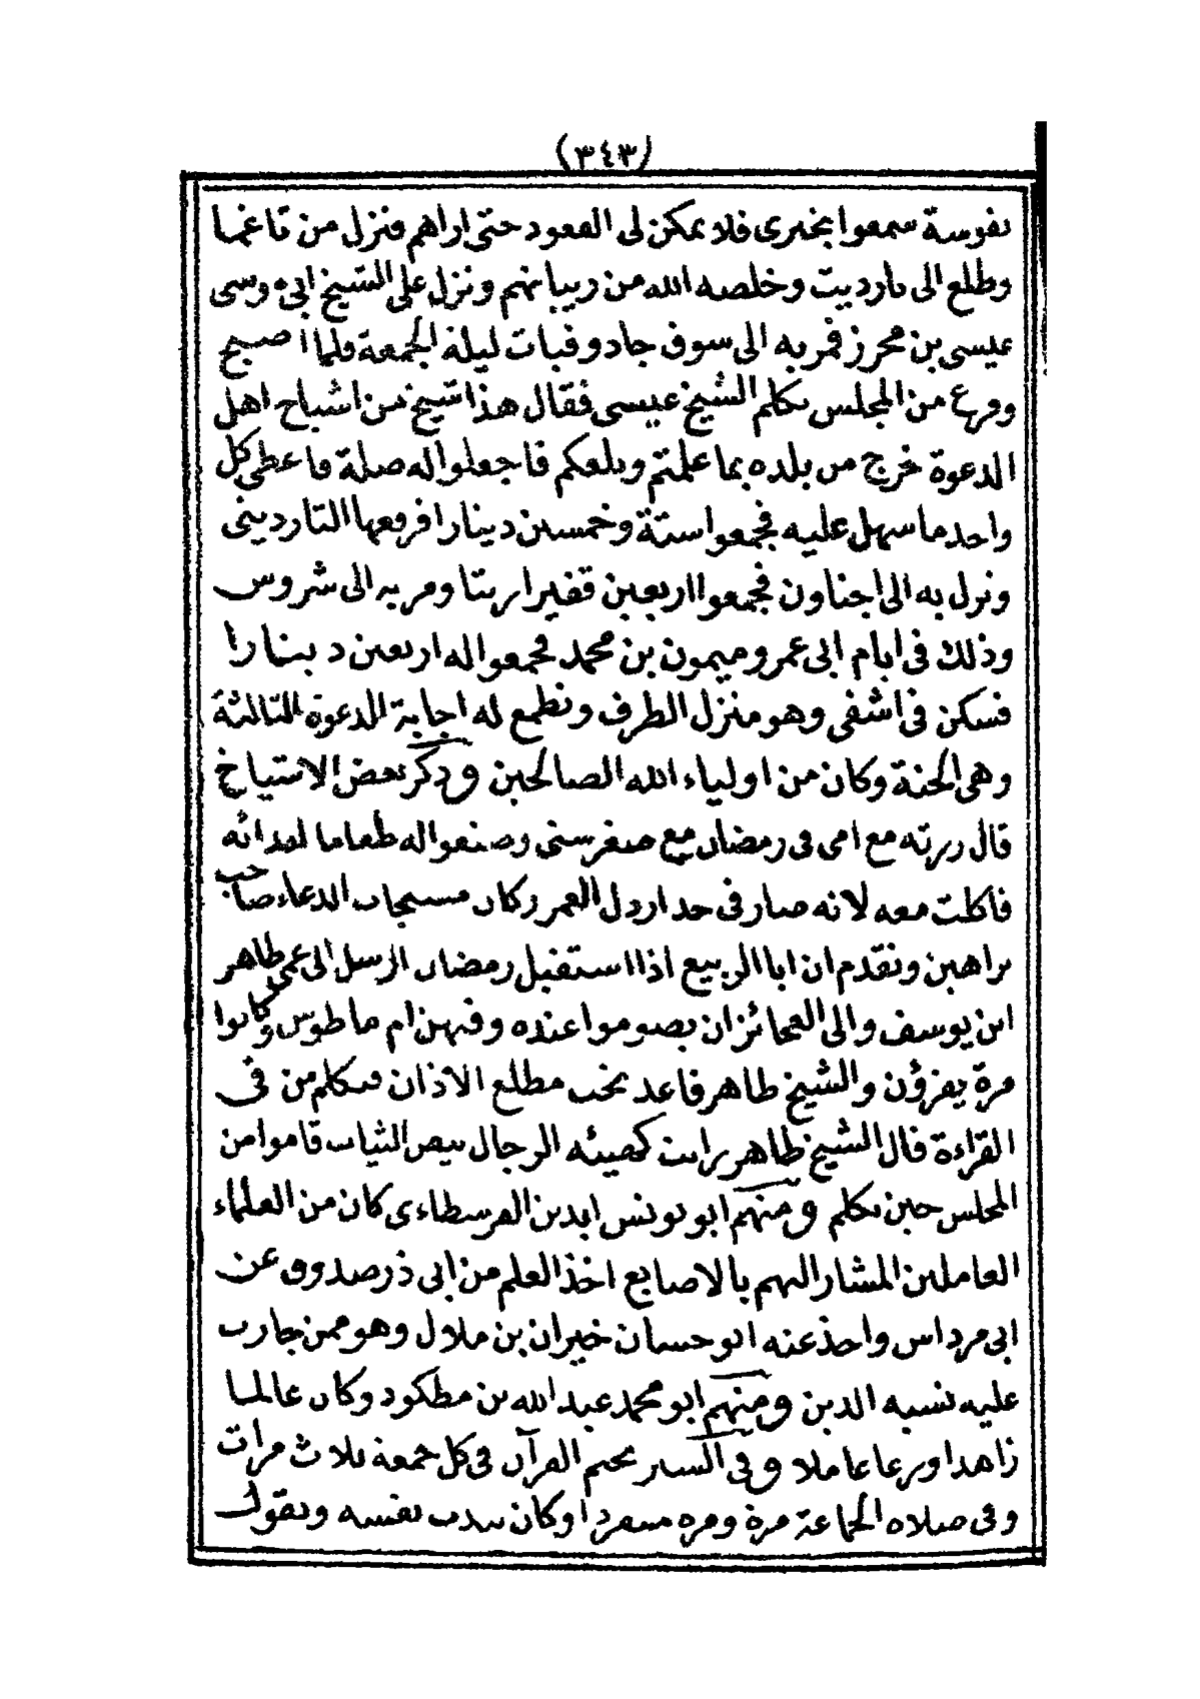 (٣٤٣)
نفوسة سمعوا بخبرى فلا يمكن لى القعود حتى اراهم فنزل من تاغما
وطلع الى تارديت وخلصه الله من ريباتهم ونزل على الشيخ ابى موسى
عيسى بن محرز فمر به الى سوق جادو فبات ليلة الجمعة فلما اصبح
وفرغ من المجلس تكلم الشيخ عيسى فقال هذا شيخ من اشياخ اهل
الدعوة خرج من بلده بما علمتم وبلغكم فاجعلوا له صلة فاعطى كل
واحد ما سهل عليه فجمعوا ستة وخمسين دينارا فرفعها التارديتى
ونزل به الى اجناون فجمعوا اربعين قفيزا زيتا ومر به الى شروس
وذلك فى ايام ابى عمرو ميمون بن محمد فجمعوا له اربعين دينارا
فسكن فى اشفى وهو منزل الطرف ونطمع له اجابة الدعوة الثالثة
وهى الجنة وكان من اولياء الله الصالحين وذكر بعض الاشياخ
قال زرته مع امى فى رمضان مع صغر سنى وصنعوا له طعاما لغدائه
فاكلت معه لانه صار فى حد ارذل العمر وكان مستجاب الدعاء صاحب
براهين وتقدم ان ابا الربيع اذا استقبل رمضان ارسل الى عمى طاهر
ابن يوسف والى العجائز ان يصوموا عنده وفيهن ام ماطوس وكانوا
مرة يقرؤن والشيخ طاهر قاعد تحت مطلع الاذان فتكلم من فى
القراءة قال الشيخ طاهر رايت كهيئة الرجال بيض الثياب قاموا من
المجلس حين تكلم ومنهم ابو يونس ابدين الفرسطاءى كان من العلماء
العاملين المشار اليهم بالاصابع اخذ العلم من ابى ذر صدوق عن
ابى مرداس واخذ عنه ابو حسان خيران بن ملال وهو ممن جازت
عليه نسبة الدين ومنهم ابو محمد عبد الله بن مطكود وكان عالما
زاهدا ورعا عاملا وفى السير يختم القرآن فى كل جمعة ثلاث مرات
وفى صلاة الجماعة مرة ومرة منفردا وكان يندب نفسه ويقول